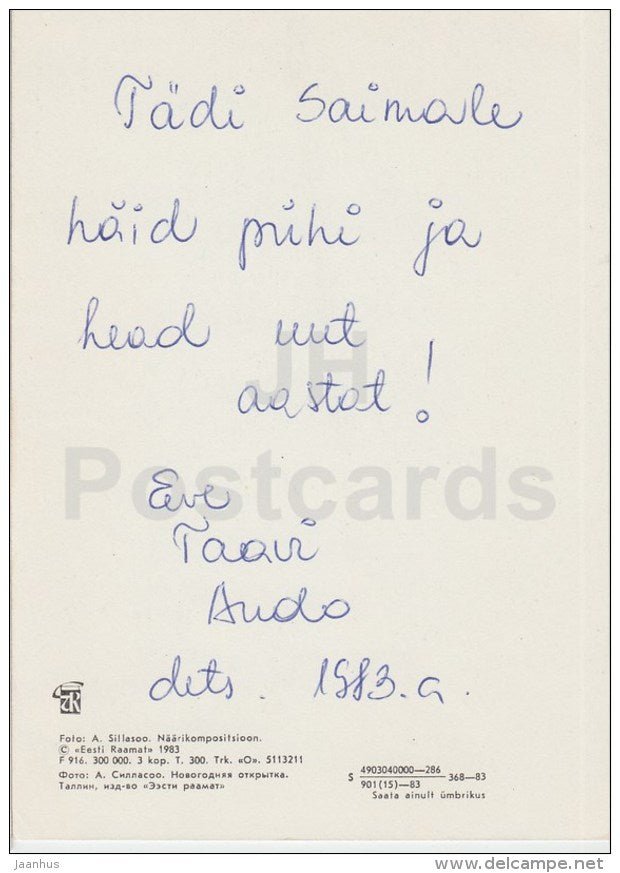 Tädi Saimale
häid pühi ja
head uut
aastat!
JH
Postcards
Eve
Taavi
Ando
dets. 1983.a.
Foto: A. Sillasoo. Näärikompositsioon.
© «Eesti Raamat» 1983
F 916. 300 000. 3 kop. T. 300. Trk. «O». 5113211
Фото: А. Силласоо. Новогодняя открытка.
Таллин, изд-во «Ээсти раамат»
S 4903040000—286
901(15)—83 368—83
Saata ainult ümbrikus
jaanhus
www.delcampe.net